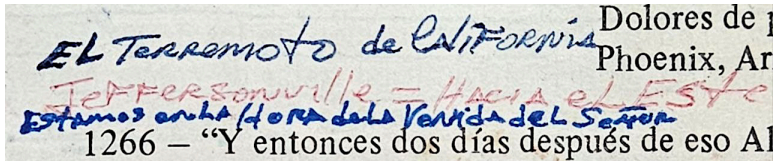 EL Terremoto de CALIFORNIA
Dolores de
Phoenix, Ar
Jeffersonville = HACIA eL ESte
Estamos en LA HORA de LA Venida deL SeñoR
1266 – “Y entonces dos días después de eso Al